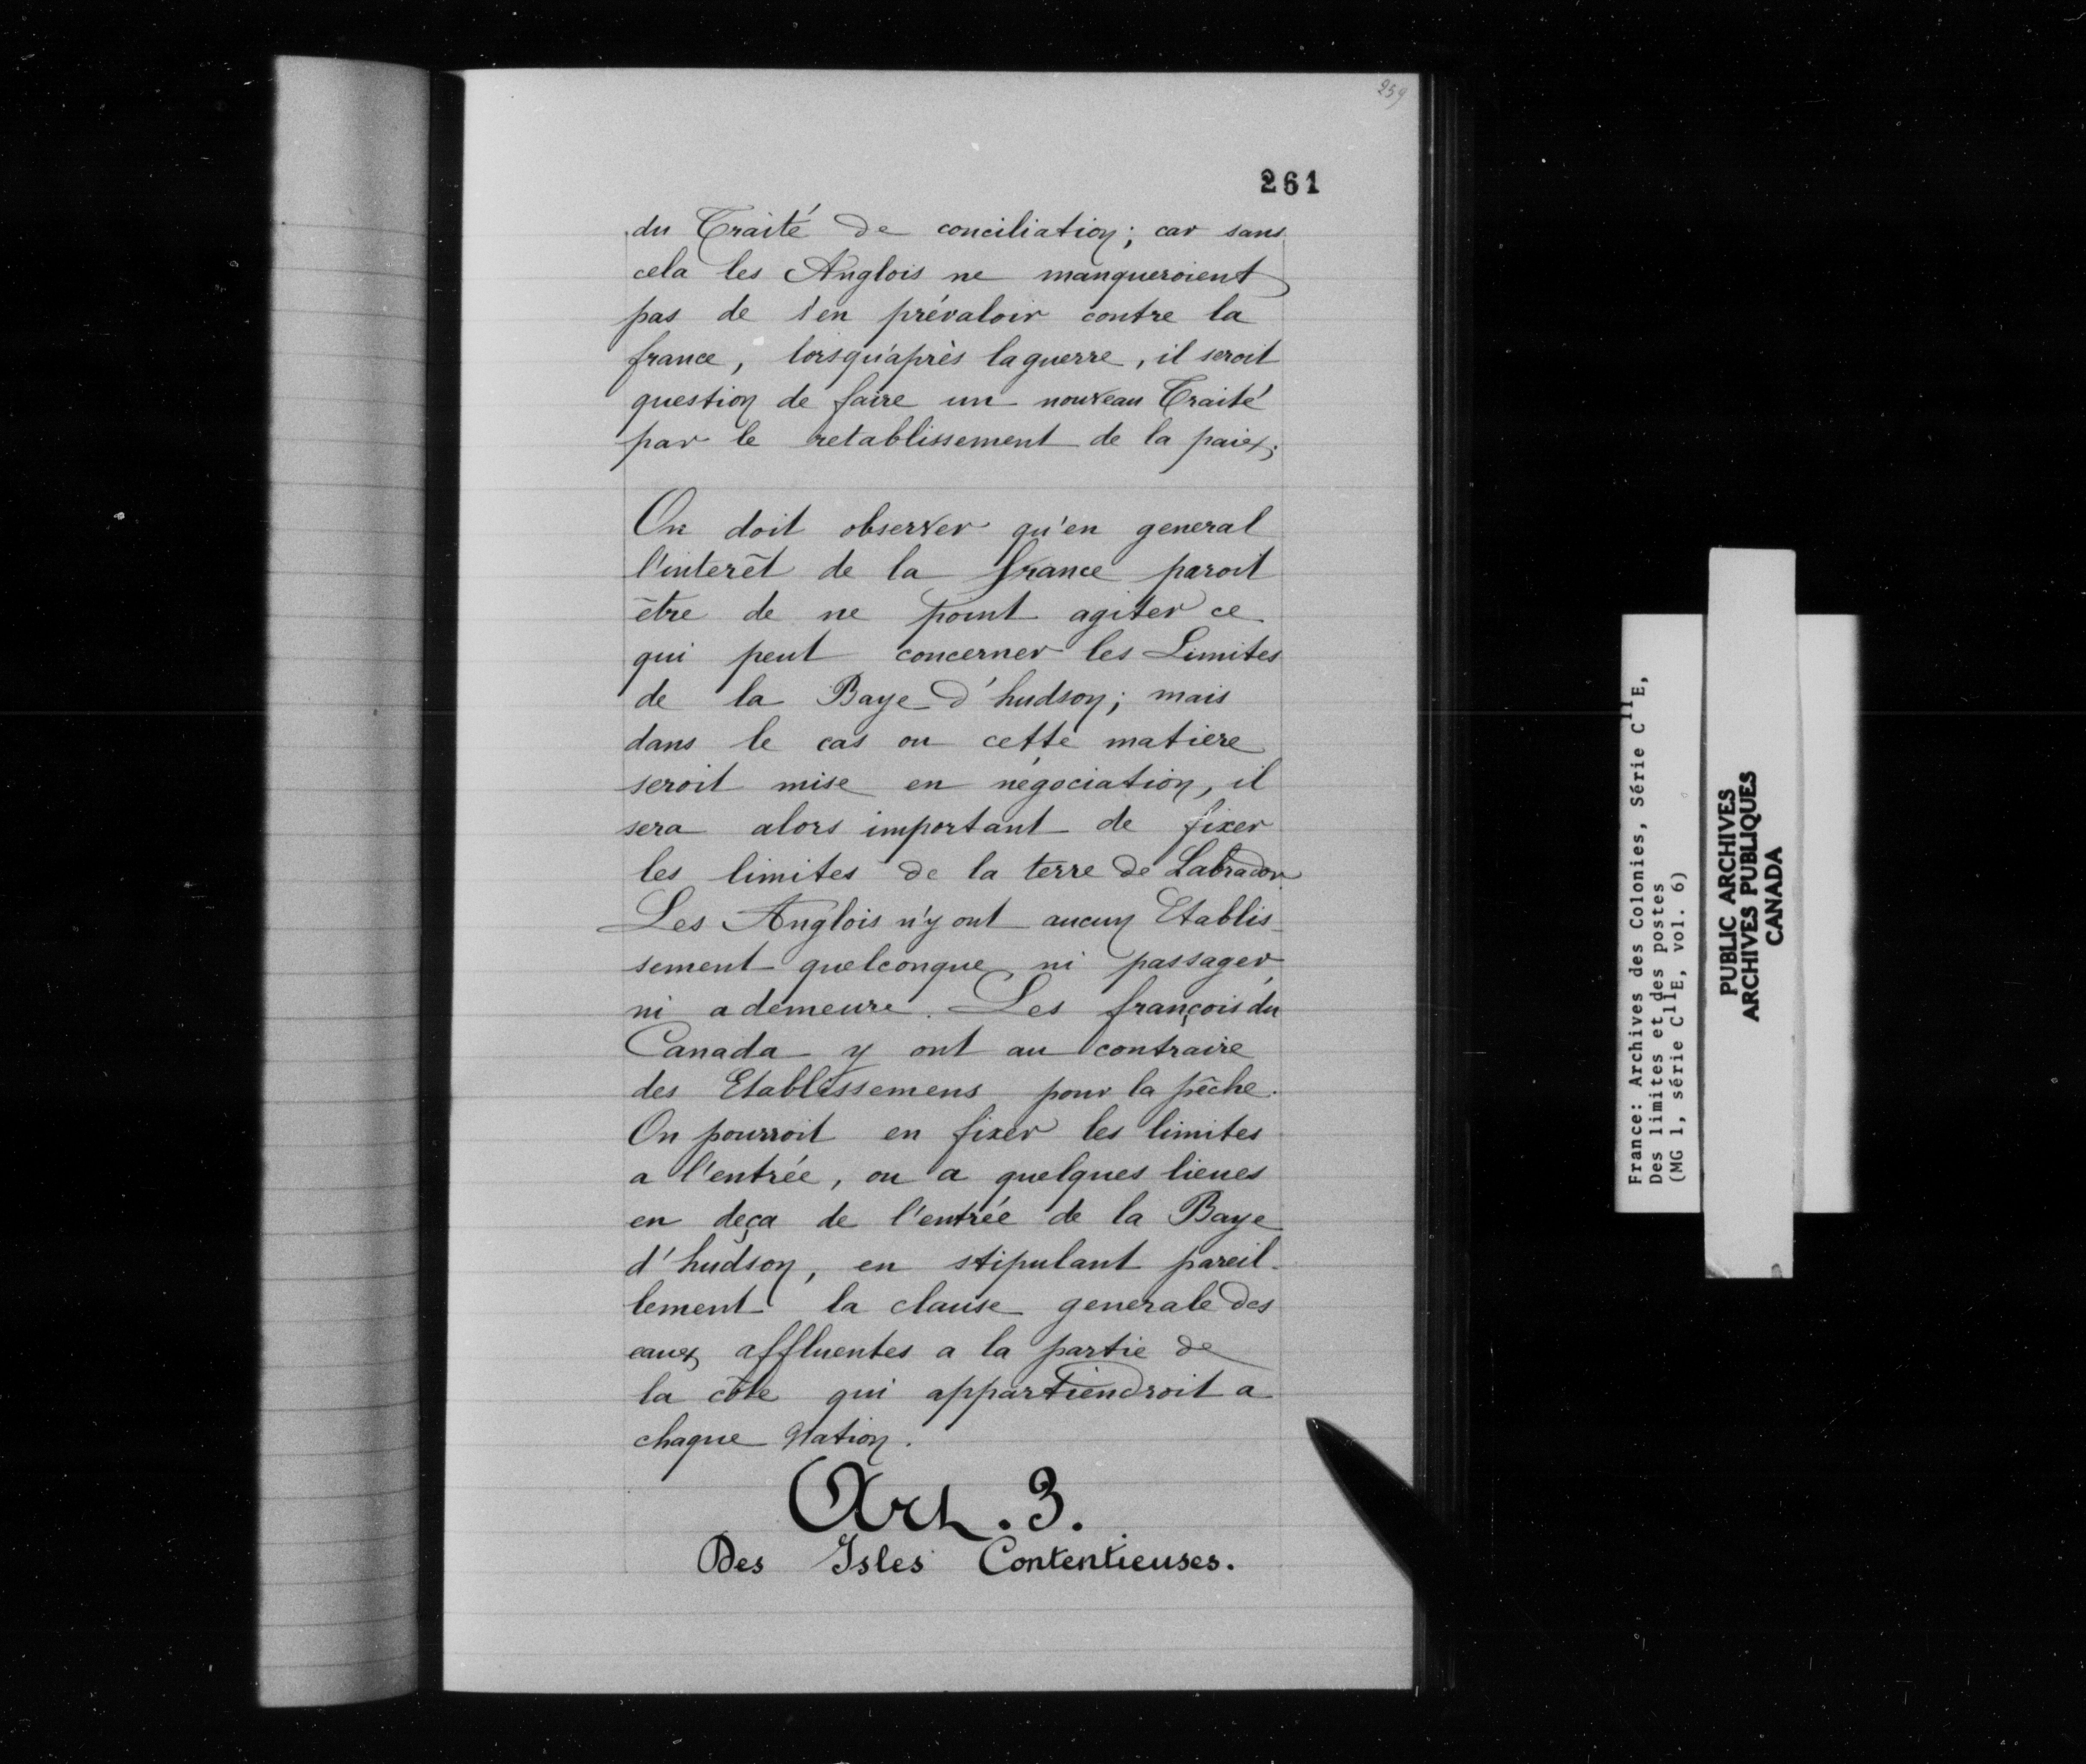 259
261
du Traité de conciliation; car sans
cela les Anglois ne manqueroient
pas de s'en prévaloir contre la
france, lorsqu'après la guerre, il seroit
question de faire un nouveau Traité
par le retablissement de la paix.
On doit observer qu'en general
l'interêt de la france paroit
être de ne point agiter ce
qui peut concerner les Limites
de la Baye d'hudson; mais
dans le cas ou cette matiere
seroit mise en négociation, il
sera alors important de fixer
les limites de la terre de Labrador.
Les Anglois n'y ont aucun Etablis-
sement quelconque ni passager,
ni a demeure. Les françois du
Canada y ont au contraire
des Etablissemens pour la pêche.
On pourroit en fixer les limites
a l'entrée, ou a quelques lieues
en deça de l'entrée de la Baye
d'hudson, en stipulant pareil-
lement la clause generale des
eaux affluentes a la partie de
la côte qui appartiendroit a
chaque Nation.
Art. 3.
Des Isles Contentieuses.
France: Archives des Colonies, Série C11E,
Des limites et des postes
(MG 1, série C11E, vol. 6)
PUBLIC ARCHIVES
ARCHIVES PUBLIQUES
CANADA